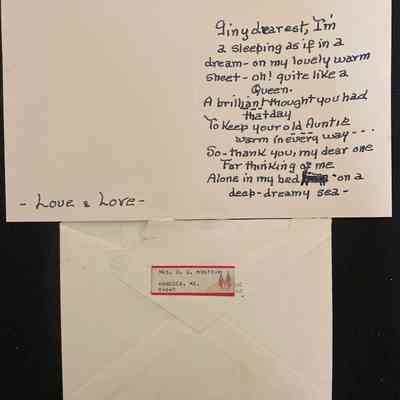 Giny dearest, I'm
a sleeping as if in a
dream - on my lovely warm
sheet - oh! quite like a
Queen.
A brilliant thought you had
that day
To keep your old Auntie
warm in every way - - -
So - thank you, my dear one
For thinking of me
Alone in my bed - on a
deep - dreamy sea -
- Love & Love -
Mrs. D. S.
Hancock, ME.